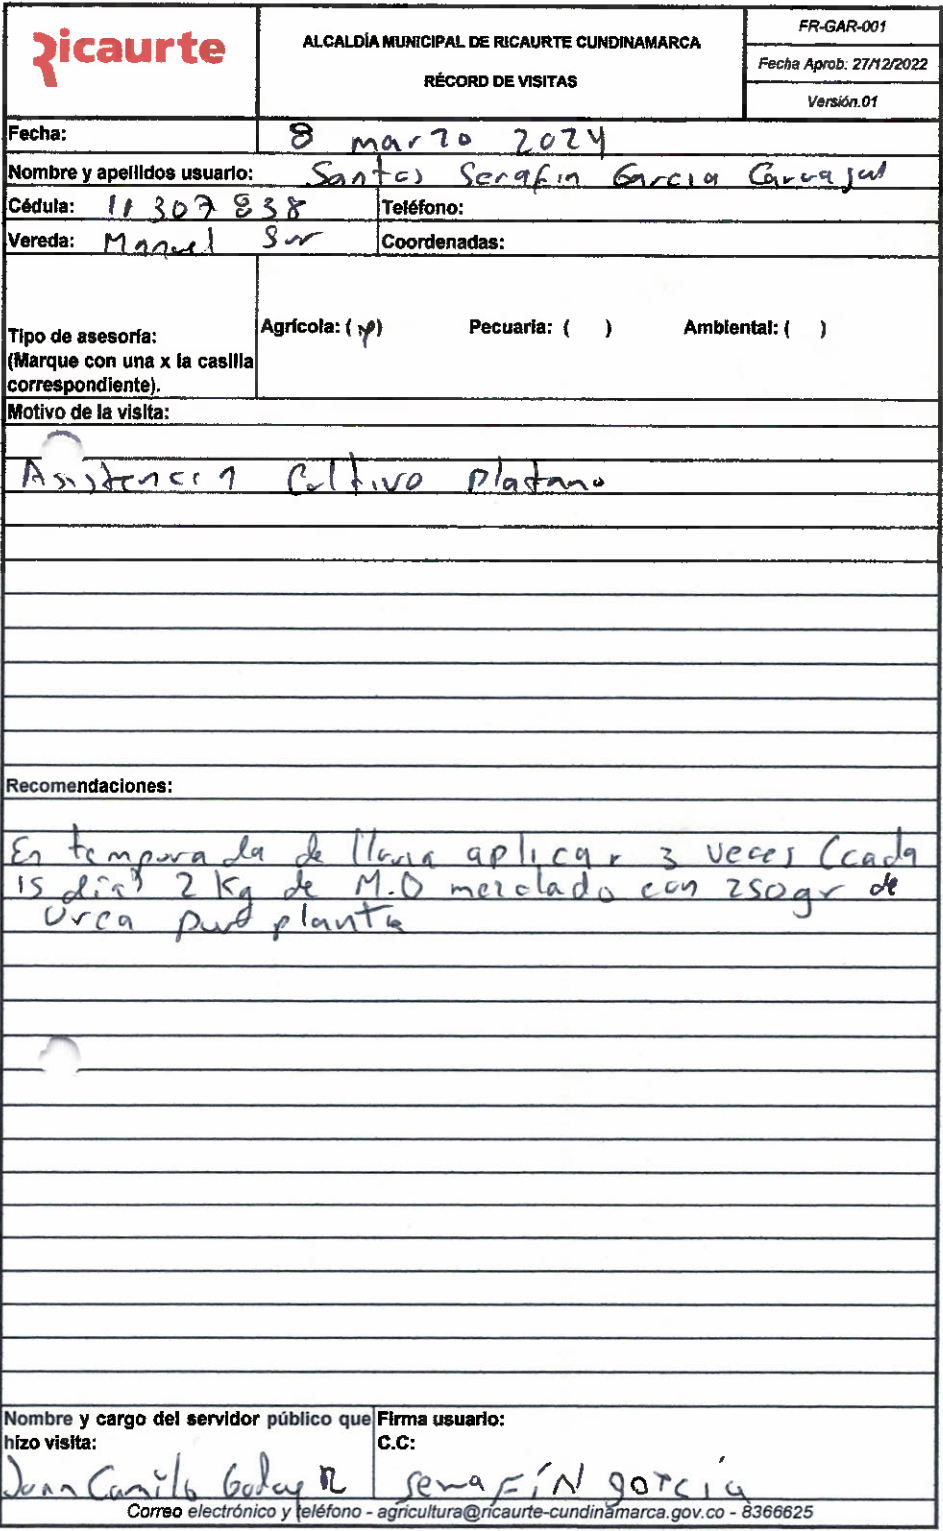 Ricaurte
ALCALDÍA MUNICIPAL DE RICAURTE CUNDINAMARCA
RÉCORD DE VISITAS
FR-GAR-001
Fecha Aprob: 27/12/2022
Versión.01
Fecha: 8 marzo 2024
Nombre y apellidos usuario: Santos Serafin Garcia Carvajal
Cédula: 11307838 Teléfono:
Vereda: Manuel Sur Coordenadas:
Tipo de asesoría:
(Marque con una x la casilla
correspondiente).
Agrícola: (x) Pecuaria: ( ) Ambiental: ( )
Motivo de la visita:
Asistencia Cultivo Platano
Recomendaciones:
En temporada de lluvia aplicar 3 veces (cada
15 dias 2 Kg de M.O mezclado con 250gr de
Urea por planta
Nombre y cargo del servidor público que
hizo visita:
Juan Camilo Godoy R
Firma usuario:
C.C:
serafín garcia
Correo electrónico y teléfono - agricultura@ricaurte-cundinamarca.gov.co - 8366625